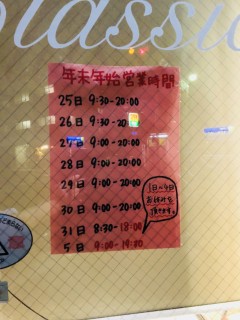 classic
年末年始営業時間
25日 9:30-20:00
26日 9:30-20
27日 9:00-20:00
28日 9:00-20:00
29日 9:00-20:00
30日 9:00-20:00
31日 8:30-18:00
5日 9:00-19:00
1日～4日
お休みを
頂きます。